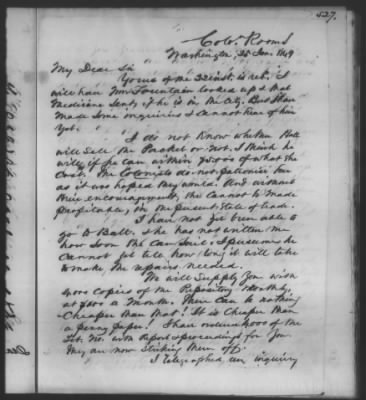 527.
Colo. Rooms
Washington, 25 Jan. 1849
My Dear Sir
Yours of the 22 inst. is recd. I
will have Mr Fountain looked up & that
Medicine sent, if he is in the City. But I have
made some inquiries & cannot hear of him
yet.
I do not know whether Hall
will sell the Packet or not. I think he
will, if he can within of what she
cost. The Colonists do not patronise her
as it was hoped they would. And without
their encouragement, she cannot be made
profitable, in the present state of trade.
I have not yet been able to
go to Balt. She has not written me
how soon she can sail. I presume he
cannot yet tell how long it will take
to make the repairs needed.
We will supply you with
4000 copies of the Repository Monthly,
at a month. There can be nothing
cheaper than that! It is cheaper than
a penny paper! I have ordered of the
Feb. No. with Report & proceedings for you
They are now striking them off.
I Telegraphed an inquiry